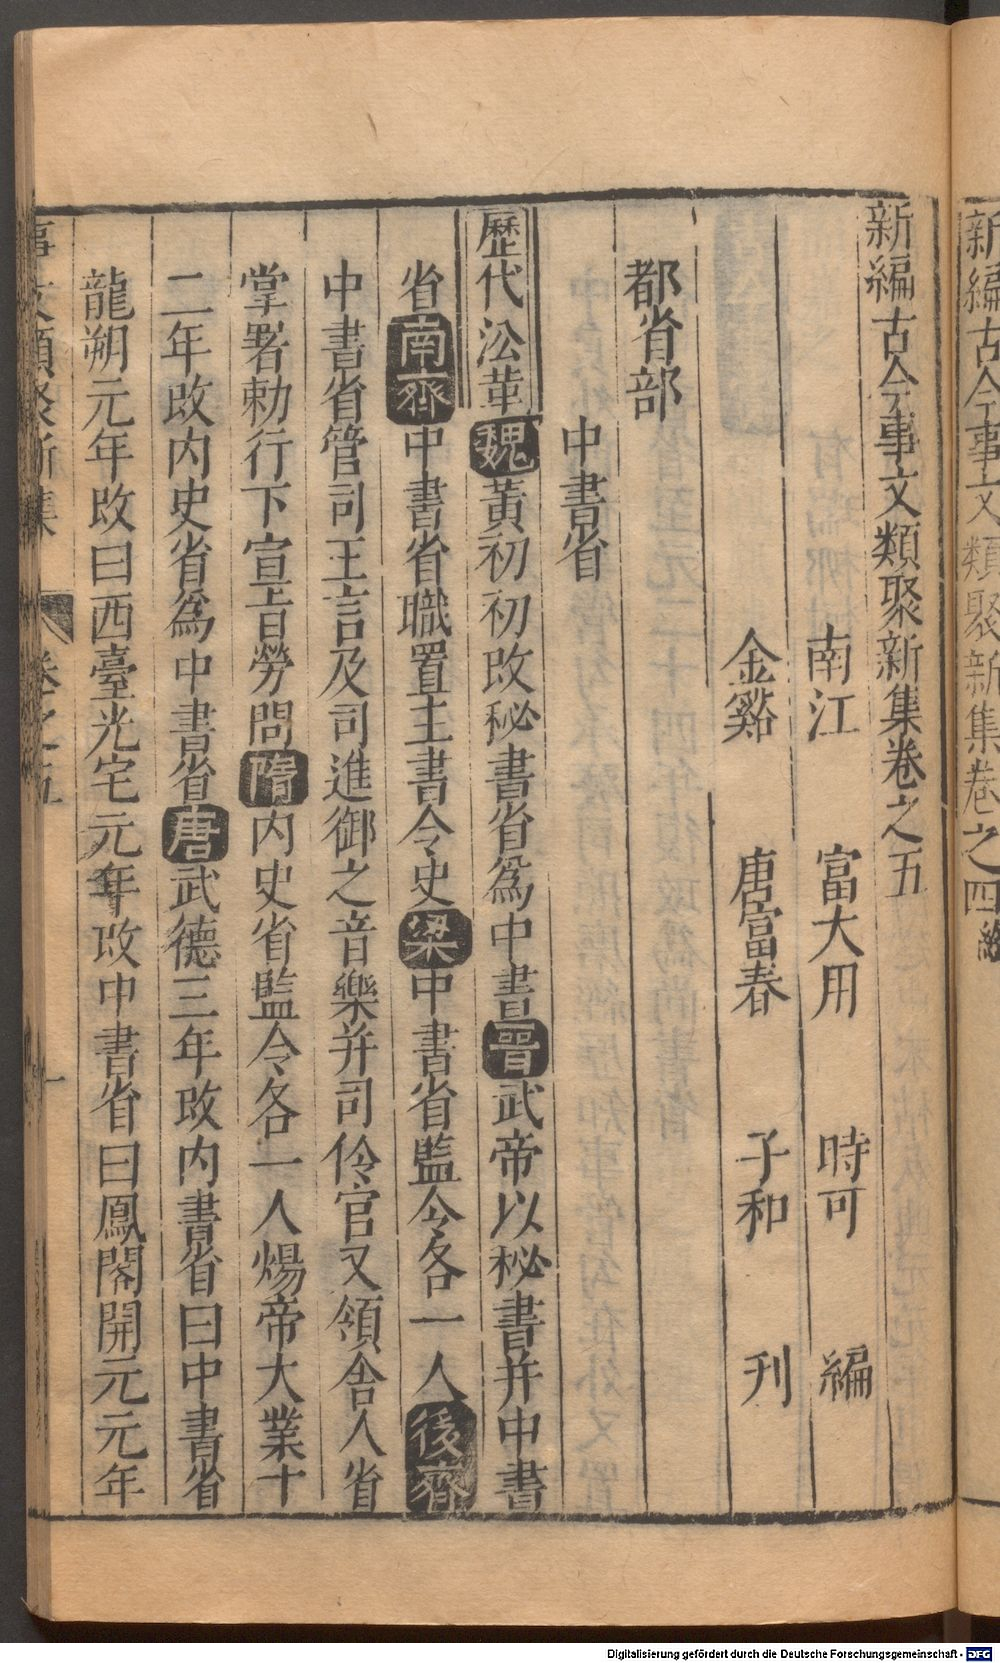 新編古今事文類聚新集卷之五
南江 富大用 時可 編
金谿 唐富春 子和 刋
都省部
中書省
歷代㳂革 魏 黃初初改秘書省爲中書 晉 武帝以秘書并中書
省 南齊 中書省職置主書令史 梁 中書省監令各一人 後齊
中書省管司王言及司進御之音樂并司伶官又領舎人省
掌署勑行下宣旨勞問 隋 内史省監令各一人煬帝大業十
二年改内史省爲中書省 唐 武德三年改内書省曰中書省
龍朔元年改曰西臺光宅元年改中書省曰鳳閣開元元年
事文類聚新集 卷之五 一
新編古今事文類聚新集卷之四終
Digitalisierung gefördert durch die Deutsche Forschungsgemeinschaft - DFG